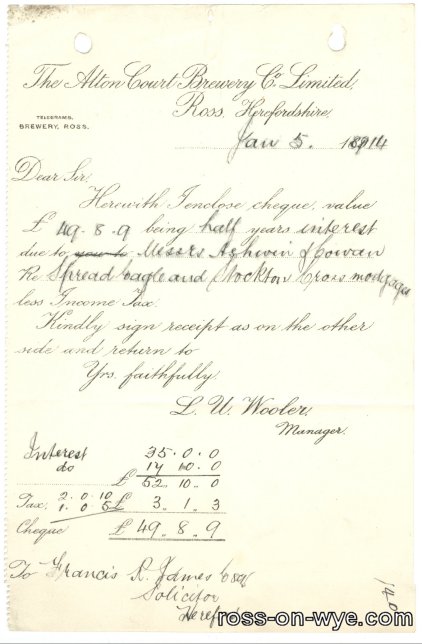 The Alton Court Brewery Co. Limited,
Ross, Herefordshire,
TELEGRAMS,
BREWERY, ROSS.
Jan 5. 1914
Dear Sir,
Herewith I enclose cheque, value
£ 49.8.9 being half years interest
due to you to Messrs Ashwin & Cowan
Re Spread Eagle and Stockton Cross mortgages
less Income Tax.
Kindly sign receipt as on the other
side and return to
Yrs. faithfully.
L. U. Wooler,
Manager.
Interest 35.0.0
do 17 10.0
£ 52.10.0
Tax. 2.0.10
1.0.5 £ 3.1.3
Cheque £ 49.8.9
To Francis R. James Esq
Solicitor
Hereford
ross-on-wye.com